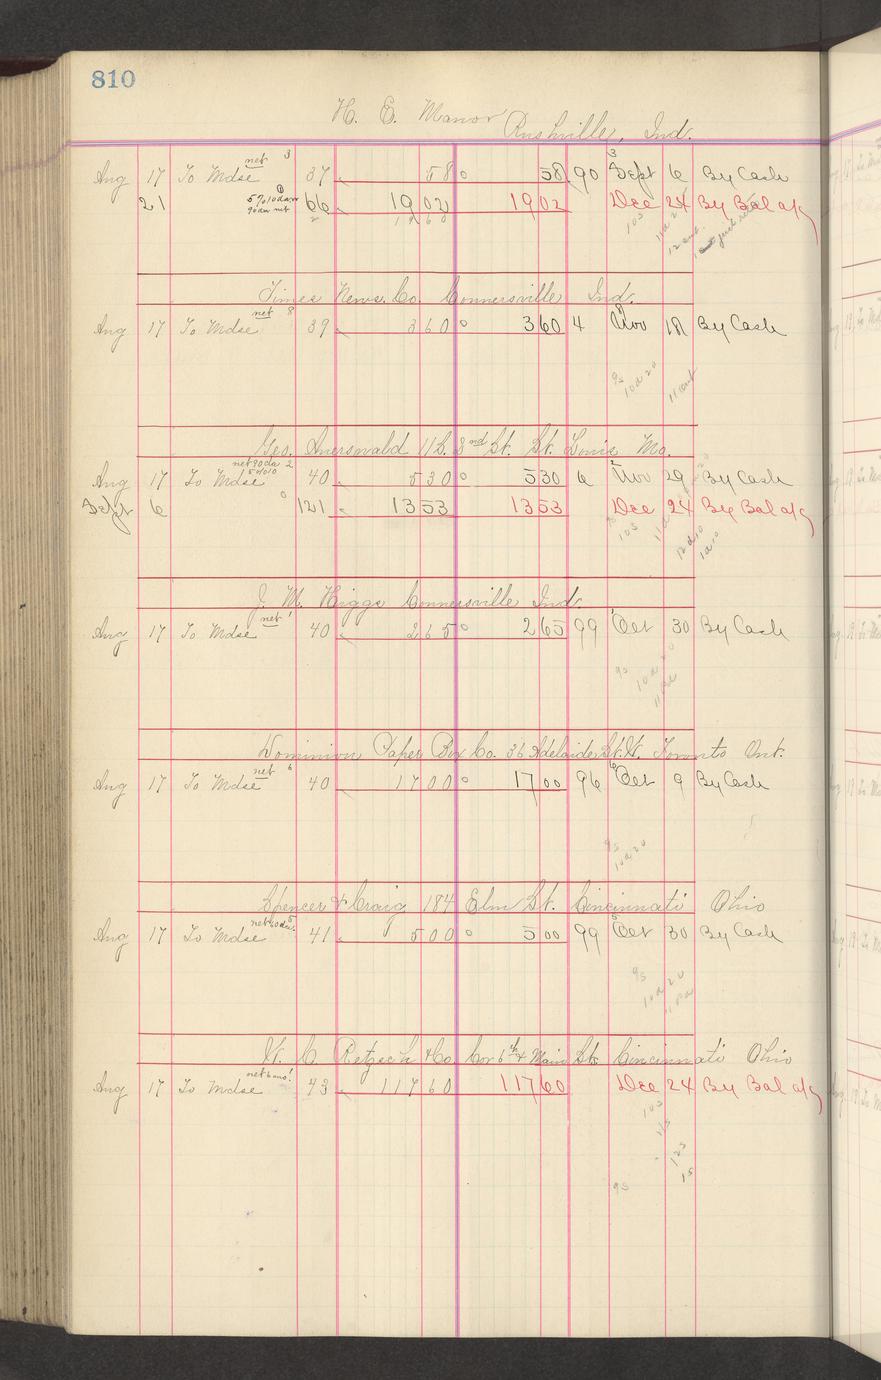 810
H. E. Manor Rushville, Ind.
Aug 17 To Mdse net 3 37 58 58 90 3 Sept 6 By Cash
21 5% 10 da 90 da net 66 19 02 19 02 Dec 24 By Bal a/c
Times News. Co. Connersville Ind.
Aug 17 To Mdse net 8 39 3 60 3 60 4 Nov 18 By Cash
9s 10d 20
Geo. Auerswald 11 S. 3nd St. St. Louis Mo.
Aug 17 To Mdse net 90 da 2 5% 10 40 5 30 5 30 6 Nov 29 By Cash
Sept 6 0 121 13 53 13 53 Dec 24 By Bal a/c
10s
J. M. Higgs Connersville Ind.
Aug 17 To Mdse net 1 40 2 65 2 65 99 Oct 30 By Cash
9s 10d 20
Dominion Paper Box Co. 36 Adelaide St. W. Toronto Ont.
Aug 17 To Mdse net 6 40 17 00 17 00 96 6 Oct 9 By Cash
9s
10d 20
Spencer & Craig 184 Elm St. Cincinnati Ohio
Aug 17 To Mdse net 60 da 5 41 5 00 5 00 99 5 Oct 30 By Cash
9s
10d 20
W. C. Retzsch & Co Cor 6th & Main Sts Cincinnati Ohio
Aug 17 To Mdse net 6 mo 1 43 117 60 117 60 Dec 24 By Bal a/c
10s
11s
12s
1s
9s